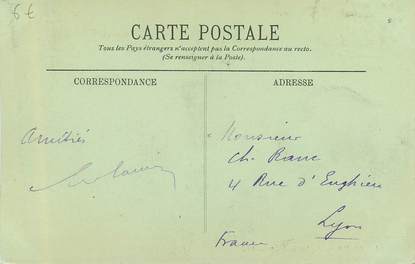 6€
CARTE POSTALE
Tous les Pays étrangers n'acceptent pas la Correspondance au recto.
(Se renseigner à la Poste).
CORRESPONDANCE
ADRESSE
Amitiés
Monsieur
Ch. Ranc
4 Rue d'Enghien
Lyon
France